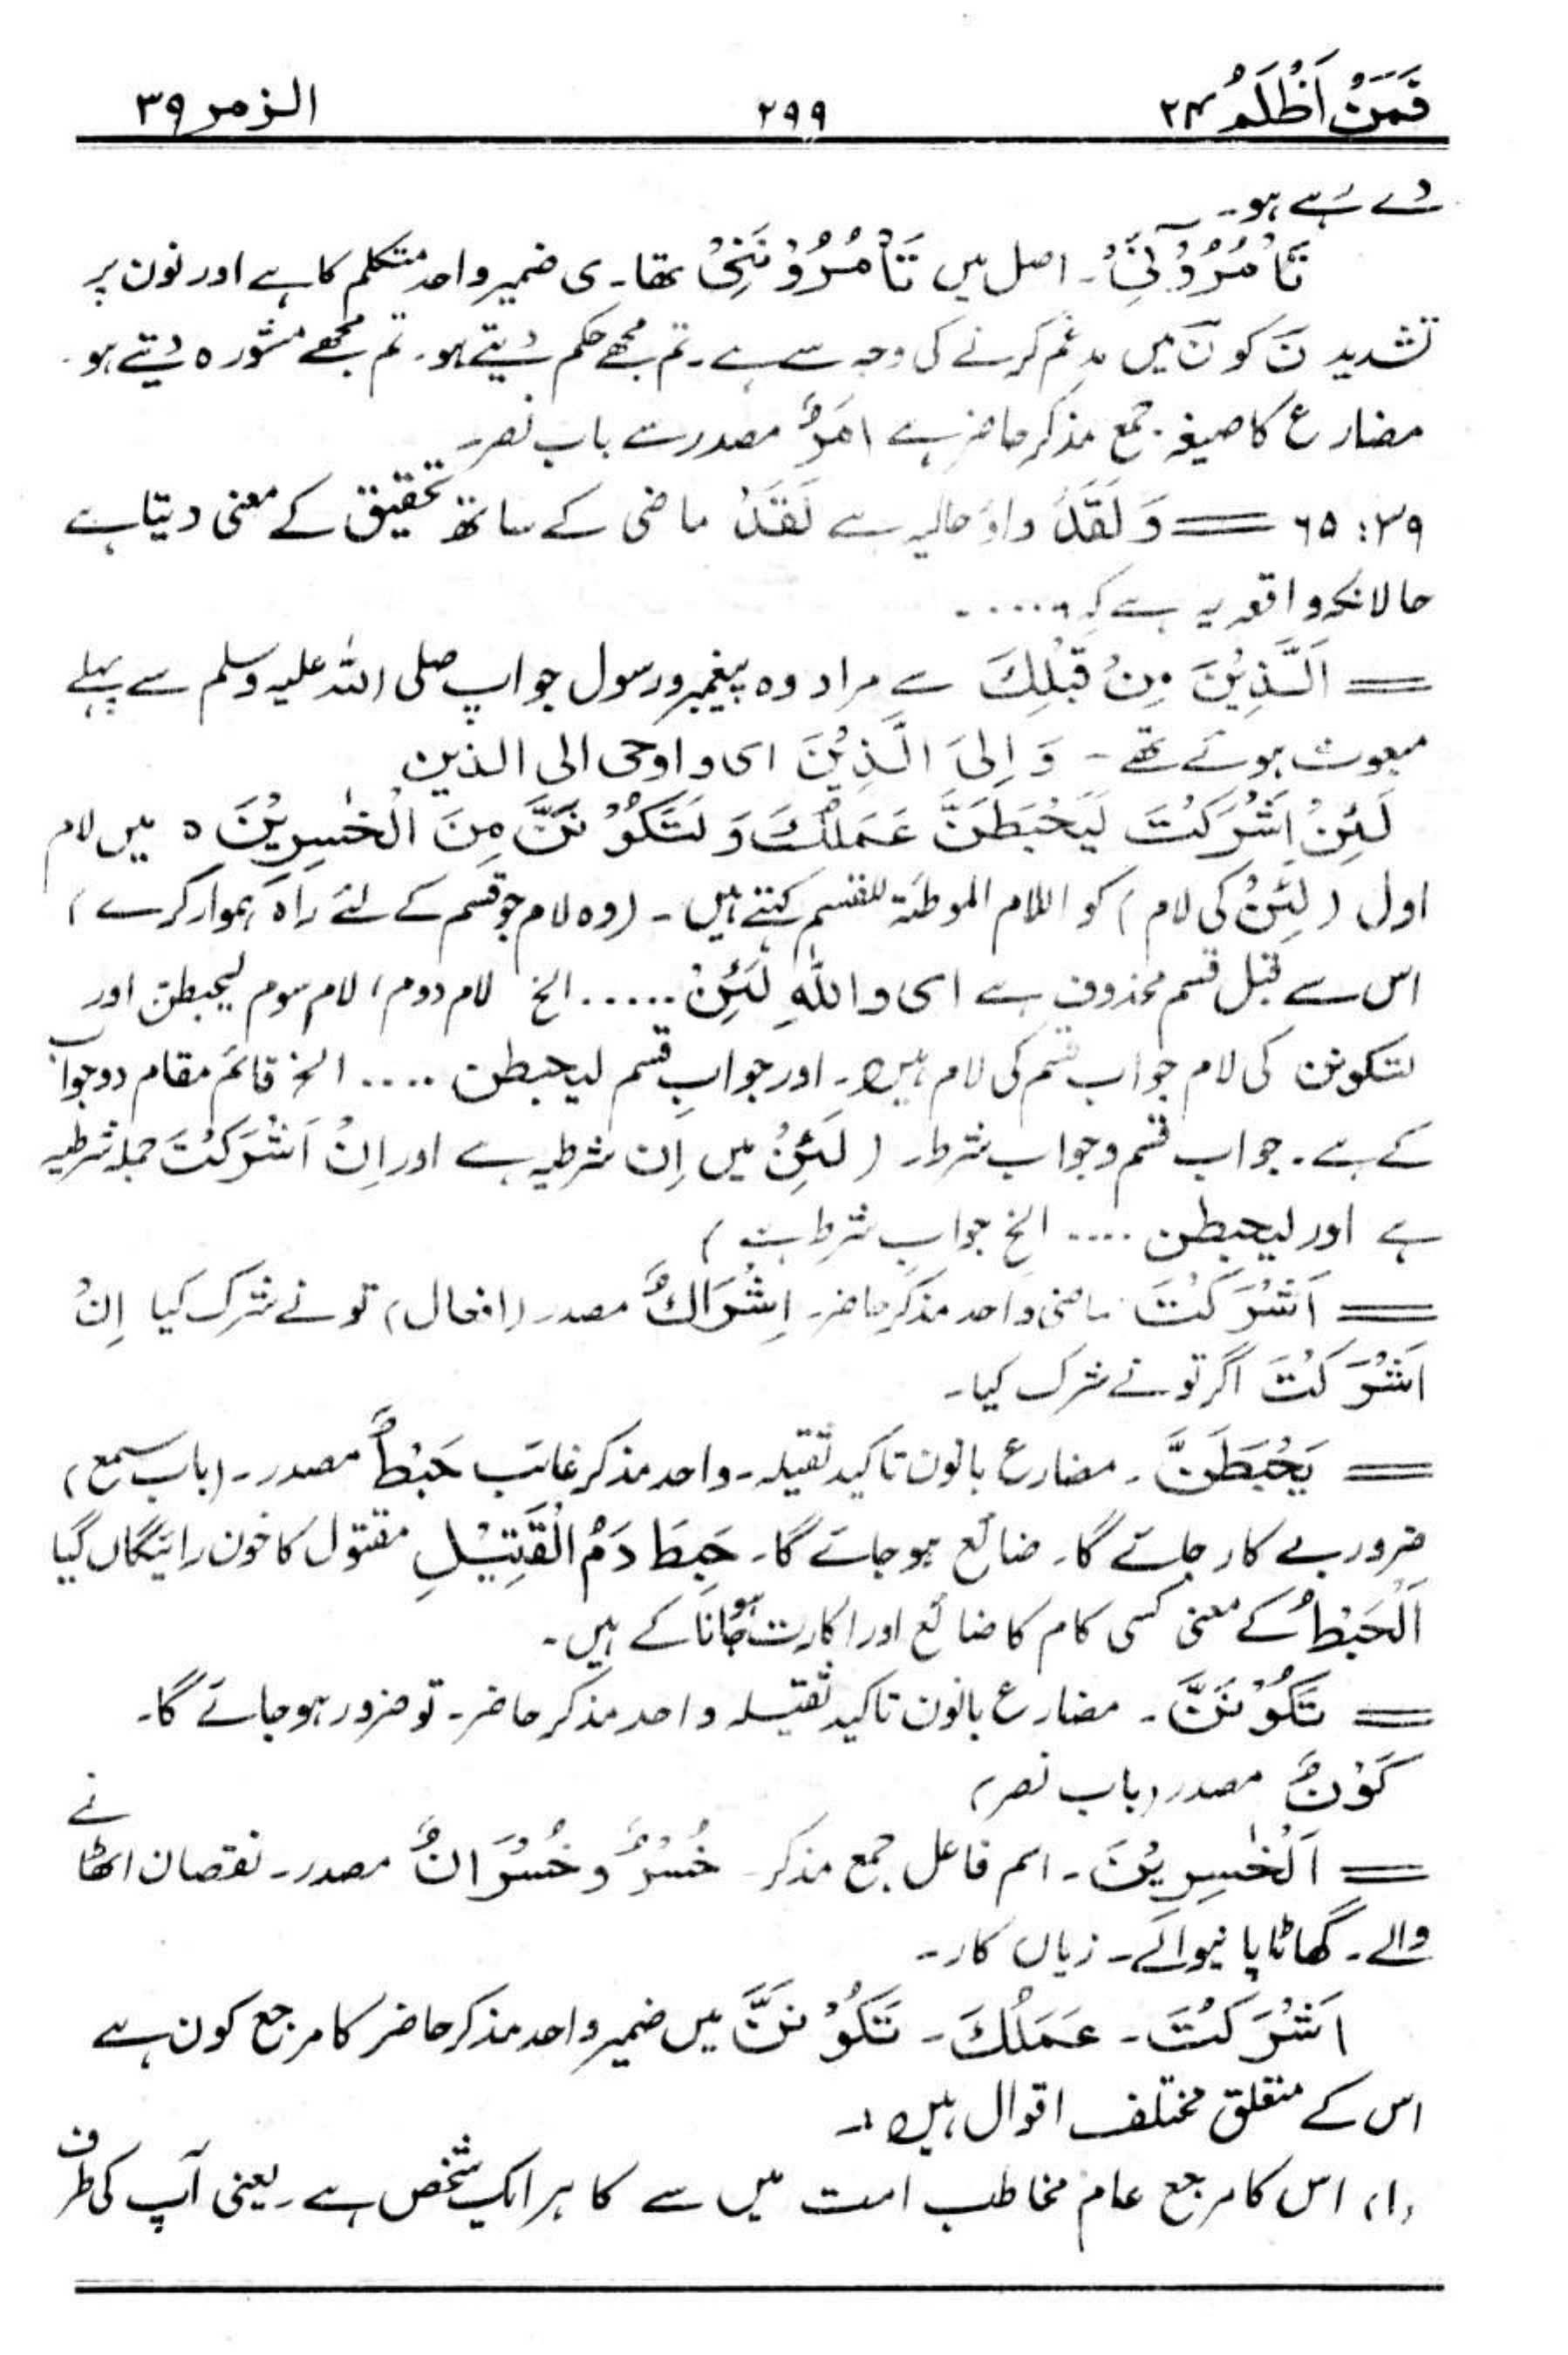 فَمَنْ اَظْلَمُ ۲۴ ۲۹۹ الزمر ۳۹
دے رہے ہو۔
تَأْمُرُوْٓنِّیْ۔ اصل میں تَأْمُرُوْنَنِیْ تھا۔ ی ضمیر واحد متکلم کا ہے اور نون پر
تشدید نَ کو نَ میں مدغم کرنے کی وجہ سے ہے۔ تم مجھے حکم دیتے ہو۔ تم مجھے مشورہ دیتے ہو۔
مضارع کا صیغہ جمع مذکر حاضر ہے اَمْرٌ مصدر سے باب نصر۔
۳۹: ۶۵ == وَ لَقَدْ واؤ حالیہ ہے لَقَدْ ماضی کے ساتھ تحقیق کے معنی دیتا ہے
حالانکہ واقعہ یہ ہے کہ .....۔
== اَلَّذِیْنَ مِنْ قَبْلِكَ سے مراد وہ پیغمبر و رسول جو آپ صلی اللہ علیہ وسلم سے پہلے
مبعوث ہوئے تھے۔ وَ اِلَی الَّذِیْنَ ای و اوحی الی الذین
لَئِنْ اَشْرَكْتَ لَیَحْبَطَنَّ عَمَلُكَ وَ لَتَكُوْنَنَّ مِنَ الْخٰسِرِیْنَ ہ میں لام
اول (لَئِنْ کی لام) کو اللام الموطئۃ للقسم کہتے ہیں۔ (وہ لام جو قسم کے لئے راہ ہموار کرے)
اس سے قبل قسم محذوف ہے ای واللّٰہِ لَئِنْ ..... الخ لام دوم، لام سوم لیحبطن اور
لتکونن کی لام جواب قسم کی لام ہیں۔ اور جوابِ قسم لیحبطن .... الخ قائم مقام دو جواب
کے ہے۔ جواب قسم و جواب شرط۔ (لَئِنْ میں اِن شرطیہ ہے اور اِنْ اَشْرَكْتَ جملہ شرطیہ
ہے اور لیحبطن .... الخ جوابِ شرط ہے)
== اَشْرَكْتَ ماضی واحد مذکر حاضر۔ اِشْرَاكٌ مصدر (افعال) تو نے شرک کیا اِنْ
اَشْرَكْتَ اگر تو نے شرک کیا۔
== یَحْبَطَنَّ۔ مضارع بانون تاکید ثقیلہ۔ واحد مذکر غائب حَبْطٌ مصدر۔ (باب سمع)
ضرور بے کار جائے گا۔ ضائع ہو جائے گا۔ حَبِطَ دَمُ الْقَتِیْلِ مقتول کا خون رائیگاں گیا
اَلْحَبْطُ کے معنی کسی کام کا ضائع اور اکارت ہو جانا کے ہیں۔
== تَكُوْنَنَّ۔ مضارع بانون تاکید ثقیلہ واحد مذکر حاضر۔ تو ضرور ہو جائے گا۔
كَوْنٌ مصدر (باب نصر)
== اَلْخٰسِرِیْنَ۔ اسم فاعل جمع مذکر۔ خُسْرٌ و خُسْرَانٌ مصدر۔ نقصان اٹھانے
والے۔ گھاٹا پانیوالے۔ زیاں کار۔
اَشْرَكْتَ۔ عَمَلُكَ۔ تَكُوْنَنَّ میں ضمیر واحد مذکر حاضر کا مرجع کون ہے
اس کے متعلق مختلف اقوال ہیں :۔
(۱) اس کا مرجع عام مخاطب امت میں سے کا ہر ایک شخص ہے۔ یعنی آپ کی طرف